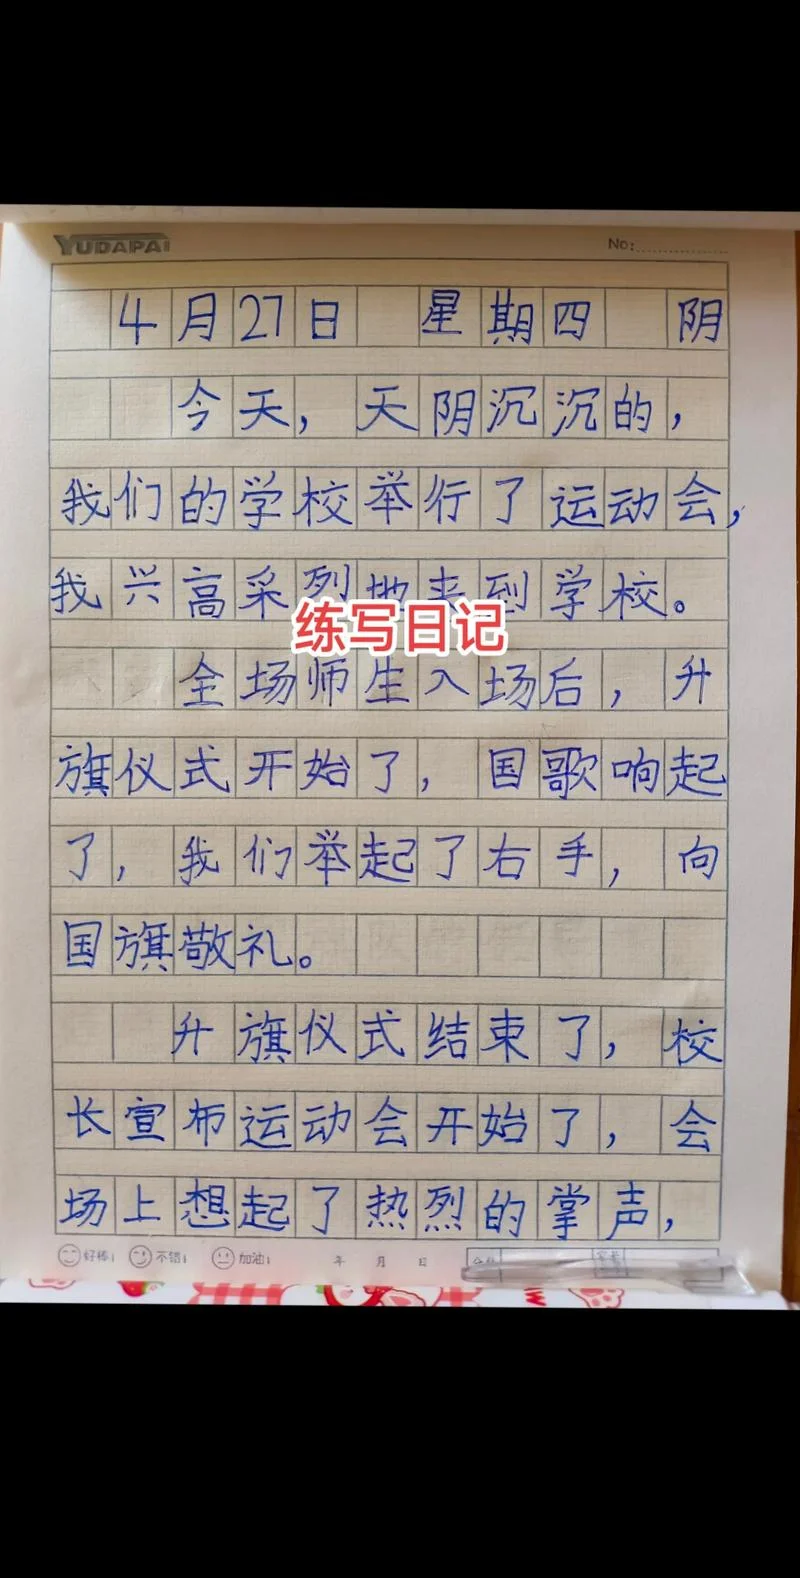 YUDAPAI
No:
4月27日 星期四 阴
今天，天阴沉沉的，
我们的学校举行了运动会，
我兴高采列地来到学校。
练写日记
全场师生入场后，升
旗仪式开始了，国歌响起
了，我们举起了右手，向
国旗敬礼。
升旗仪式结束了，校
长宣布运动会开始了，会
场上想起了热烈的掌声，
好棒! 不错! 加油! 年 月 日